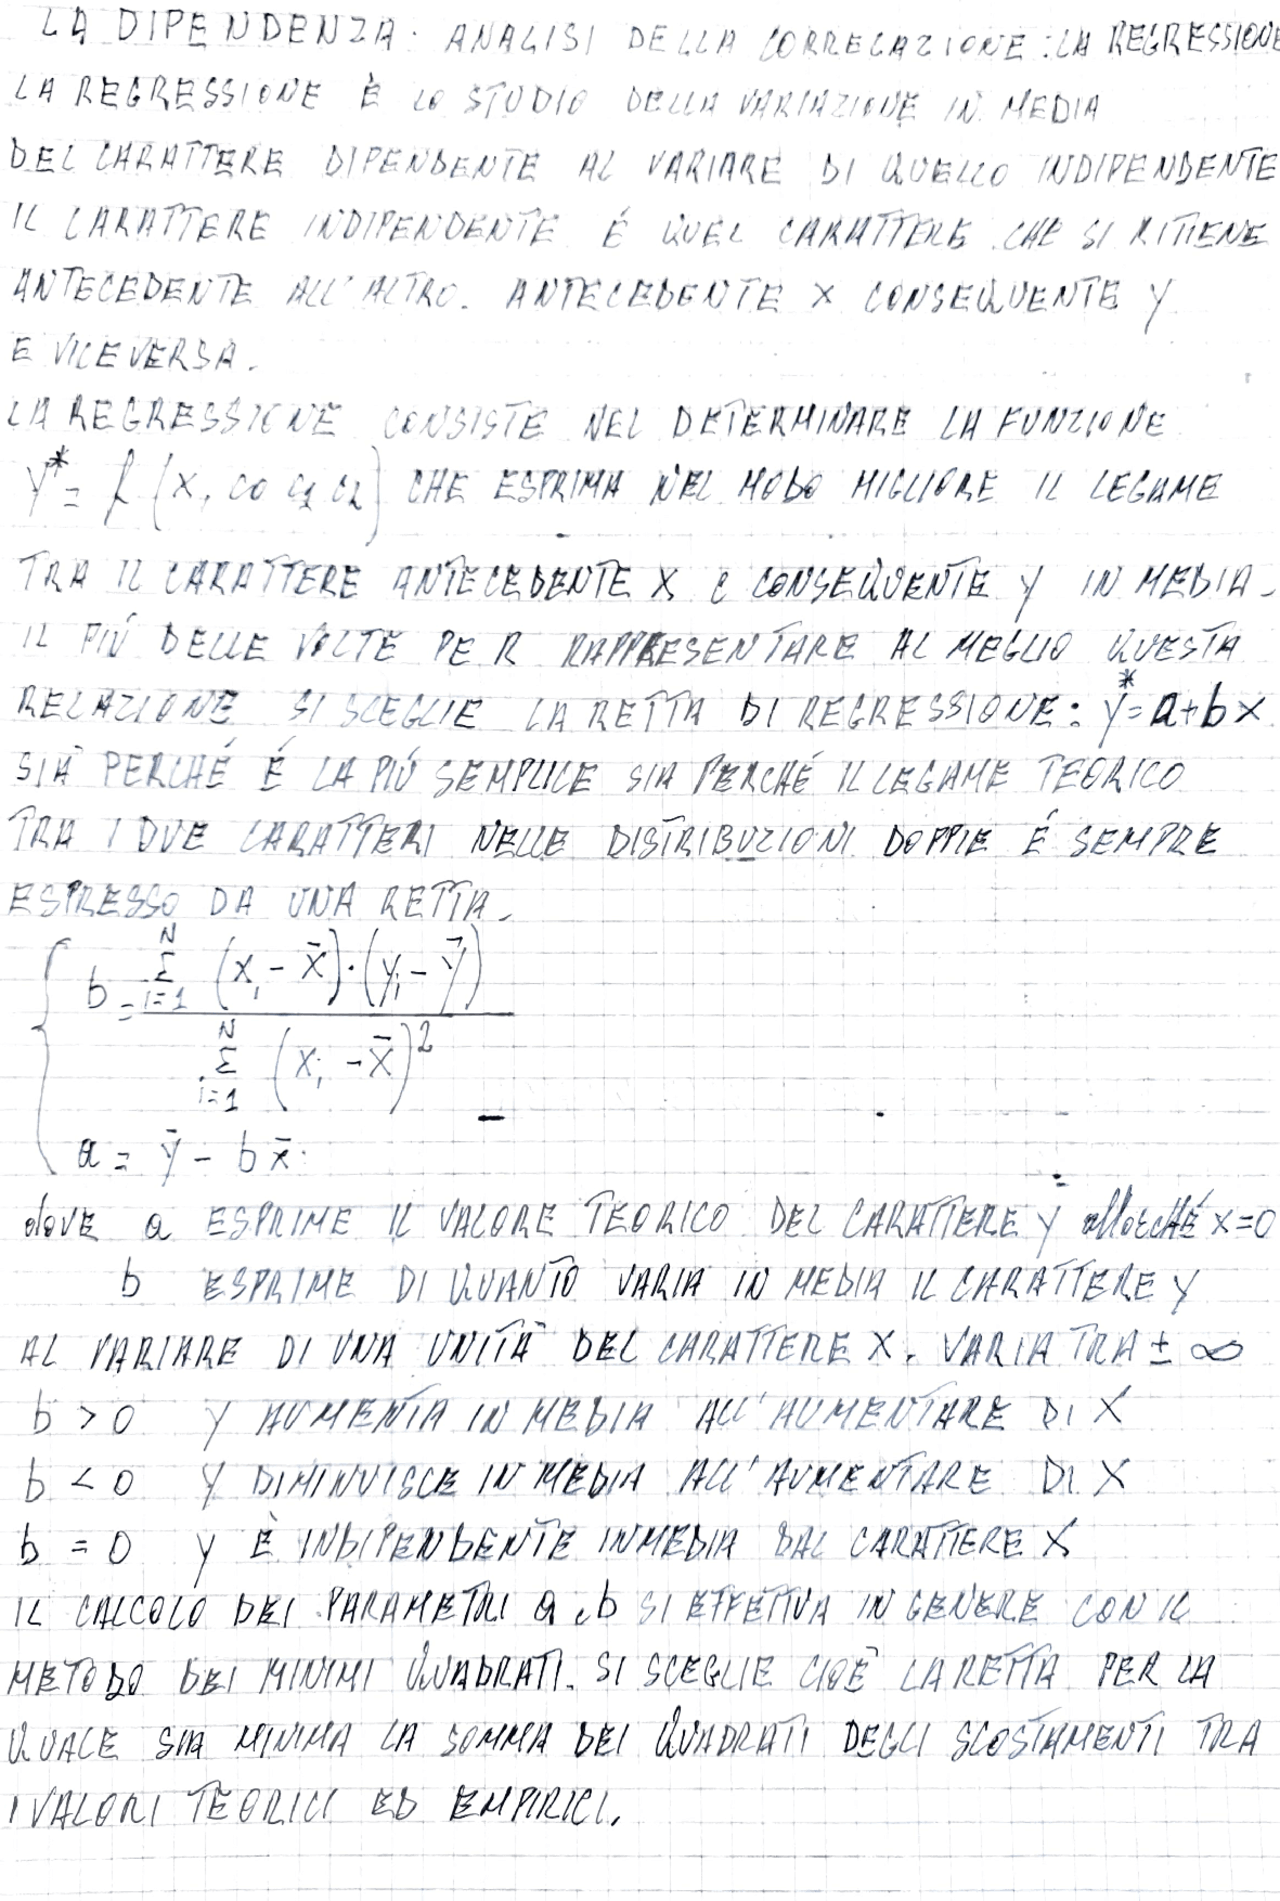 LA DIPENDENZA. ANALISI DELLA CORRELAZIONE: LA REGRESSIONE
LA REGRESSIONE È LO STUDIO DELLA VARIAZIONE IN MEDIA
DEL CARATTERE DIPENDENTE AL VARIARE DI QUELLO INDIPENDENTE
IL CARATTERE INDIPENDENTE É QUEL CARATTERE CHE SI RITIENE
ANTECEDENTE ALL'ALTRO. ANTECEDENTE X CONSEQUENTE Y
E VICEVERSA.
LA REGRESSIONE CONSISTE NEL DETERMINARE LA FUNZIONE
Y* = f (X, c0 c1 c2) CHE ESPRIMA NEL MODO MIGLIORE IL LEGAME
TRA IL CARATTERE ANTECEDENTE X E CONSEQUENTE Y IN MEDIA.
IL PIÚ DELLE VOLTE PER RAPPRESENTARE AL MEGLIO QUESTA
RELAZIONE SI SCEGLIE LA RETTA DI REGRESSIONE: Y* = a+bx
SIA PERCHÉ É LA PIÚ SEMPLICE SIA PERCHÉ IL LEGAME TEORICO
TRA I DUE CARATTERI NELLE DISTRIBUZIONI DOPPIE É SEMPRE
ESPRESSO DA UNA RETTA.
b = Σ_{i=1}^{N} (x_i - x̄)·(y_i - ȳ)
Σ_{i=1}^{N} (x_i - x̄)²
a = ȳ - b x̄
dove a ESPRIME IL VALORE TEORICO DEL CARATTERE Y allorCHÉ X=0
b ESPRIME DI QUANTO VARIA IN MEDIA IL CARATTERE Y
AL VARIARE DI UNA UNITÀ DEL CARATTERE X. VARIA TRA ± ∞
b > 0 Y AUMENTA IN MEDIA ALL'AUMENTARE DI X
b < 0 Y DIMINUISCE IN MEDIA ALL'AUMENTARE DI X
b = 0 Y È INDIPENDENTE IN MEDIA DAL CARATTERE X
IL CALCOLO DEI PARAMETRI a, b SI EFFETTUA IN GENERE CON IL
METODO DEI MINIMI QUADRATI. SI SCEGLIE CIOÈ LA RETTA PER LA
QUALE SIA MINIMA LA SOMMA DEI QUADRATI DEGLI SCOSTAMENTI TRA
I VALORI TEORICI ED EMPIRICI.